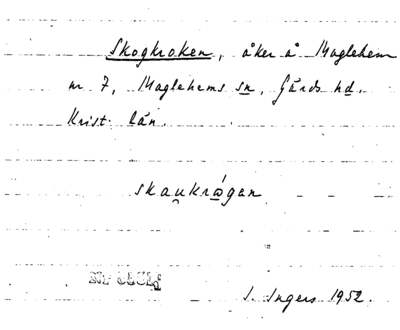 Skogkroken, åker å Maglehem
nr 7, Maglehems sn, Gärds hd.
Krist. län.
skau̯krågan
I. Ingers 1952.